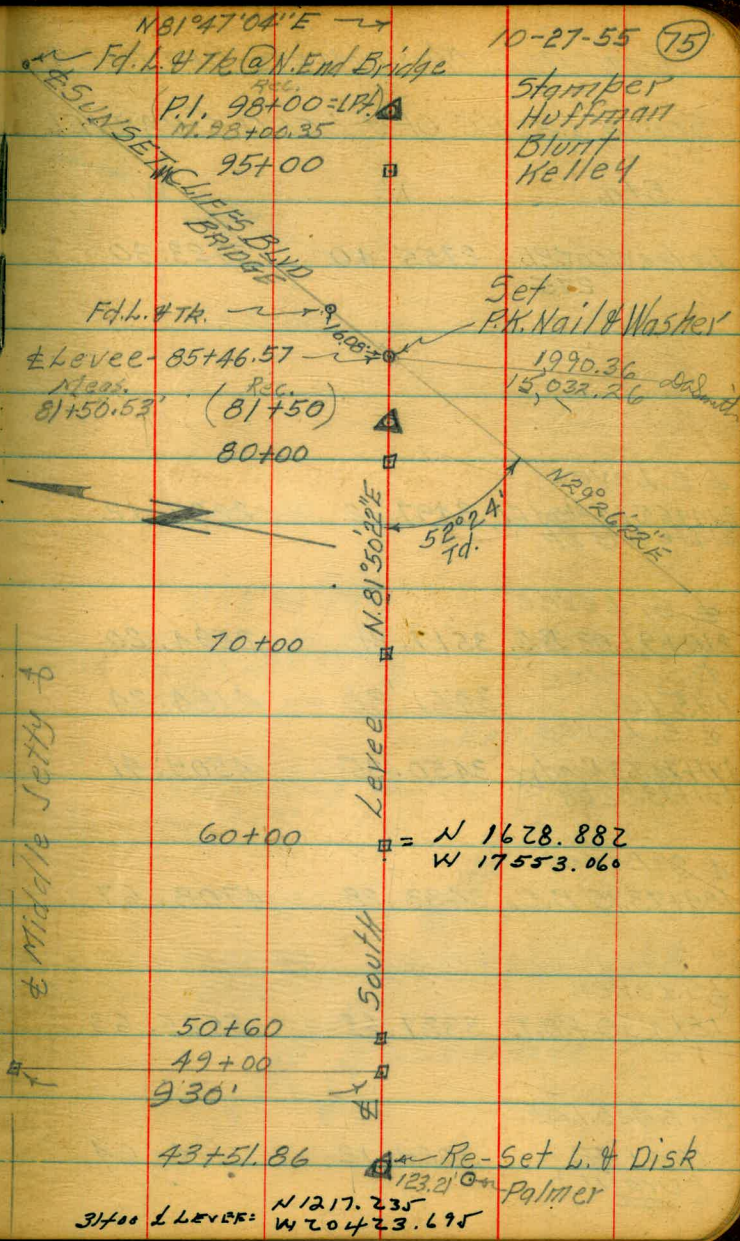 N81°47'04"E
10-27-55 75
Fd. L. & Tk @ N. End Bridge
Stamper
Huffman
Blunt
Kelley
Rec.
(P.I. 98+00=LPt)
M. 98+00.35
95+00
℄ SUNSET CLIFFS BLVD
BRIDGE
Set
P.K. Nail & Washer
Fd. L. & Tk.
16.08'
℄ Levee - 85+46.57
1,990.36
15,032.26
Meas.
81+50.53'
Rec.
(81+50)
80+00
N29°26'22"E
52°24'
Td.
N.81°50'22"E
70+00
℄ Middle Jetty
℄ South Levee
60+00
= N 1628.882
W 17553.060
50+60
49+00
930'
43+51.86
Re-Set L. & Disk
123.21' Palmer
31+00 ℄ LEVEE= N 1217.235
W 20423.695